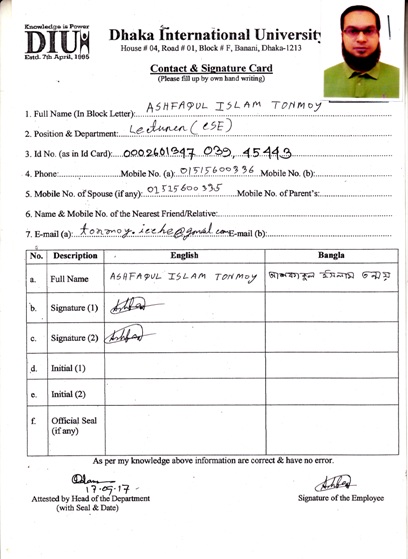 Knowledge is Power
DIU
Estd. 7th April, 1995
Dhaka International University
House # 04, Road # 01, Block # F, Banani, Dhaka-1213
Contact & Signature Card
(Please fill up by own hand writing)
1. Full Name (In Block Letter): ASHFAQUL ISLAM TONMOY
2. Position & Department: Lecturer (CSE)
3. Id No. (as in Id Card): 0002601347 039, 45443
4. Phone: Mobile No. (a): 01515600336 Mobile No. (b):
5. Mobile No. of Spouse (if any): 01515600335 Mobile No. of Parent's:
6. Name & Mobile No. of the Nearest Friend/Relative:
7. E-mail (a): tonmoy.icche@gmail.com E-mail (b):
No. Description English Bangla
a. Full Name ASHFAQUL ISLAM TONMOY আশফাকুল ইসলাম তন্ময়
b. Signature (1)
c. Signature (2)
d. Initial (1)
e. Initial (2)
f. Official Seal
(if any)
As per my knowledge above information are correct & have no error.
17-09-17
Attested by Head of the Department
(with Seal & Date)
Signature of the Employee